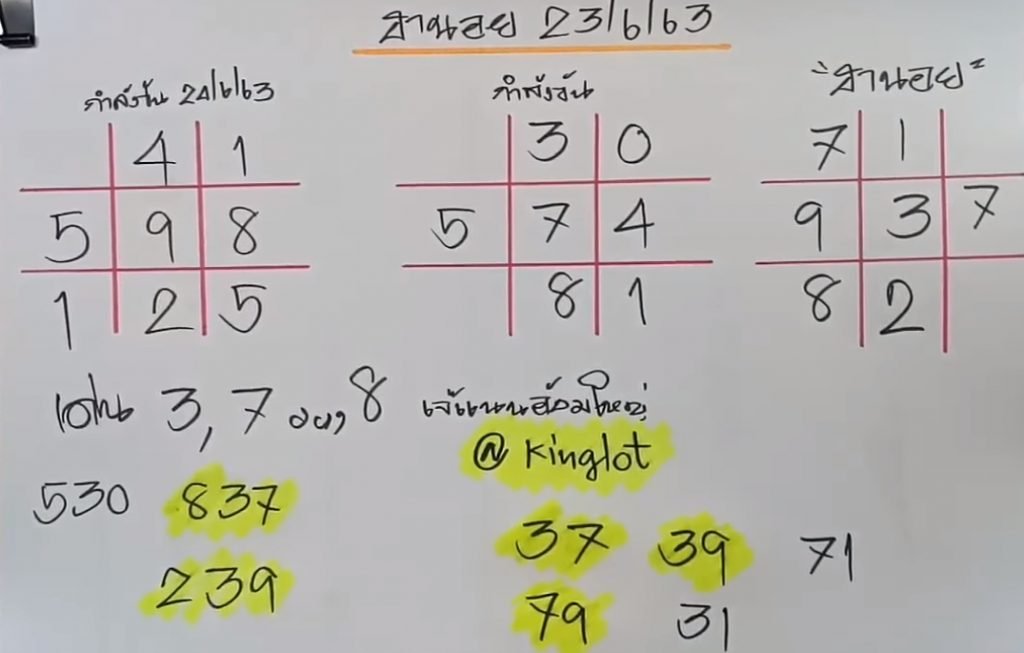 ฮานอย 23/6/63
กำลังวัน 24/6/63
กำลังวัน
"ฮานอย"
4 1
5 9 8
1 2 5
3 0
5 7 4
8 1
7 1
9 3 7
8 2
เด่น 3, 7 รอง, 8
@ Kinglot
530 837
239
37 39 71
79 31